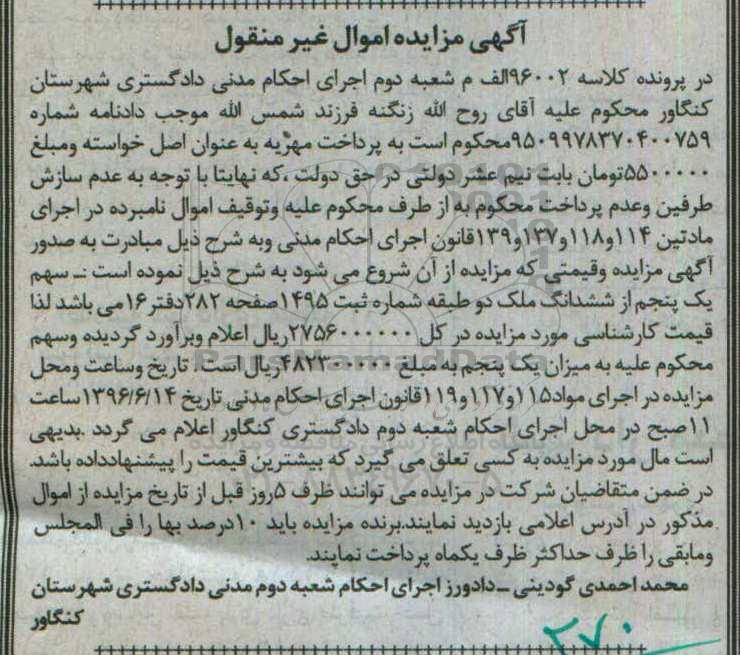 آگهی مزایده اموال غیر منقول
در پرونده کلاسه ۹۶۰۰۲الف م شعبه دوم اجرای احکام مدنی دادگستری شهرستان
کنگاور محکوم علیه آقای روح الله زنگنه فرزند شمس الله موجب دادنامه شماره
۹۵۰۹۹۷۸۳۷۰۴۰۰۷۵۹محکوم است به پرداخت مهریه به عنوان اصل خواسته ومبلغ
۵۵۰۰۰۰۰تومان بابت نیم عشر دولتی در حق دولت ،که نهایتا با توجه به عدم سازش
طرفین وعدم پرداخت محکوم به از طرف محکوم علیه وتوقیف اموال نامبرده در اجرای
مادتین ۱۱۴و۱۱۸و۱۳۷و۱۳۹قانون اجرای احکام مدنی وبه شرح ذیل مبادرت به صدور
آگهی مزایده وقیمتی که مزایده از آن شروع می شود به شرح ذیل نموده است :ـ سهم
یک پنجم از ششدانگ ملک دو طبقه شماره ثبت ۱۴۹۵صفحه ۲۸۲دفتر۱۶می باشد لذا
قیمت کارشناسی مورد مزایده در کل ۲۷۵۶۰۰۰۰۰۰ریال اعلام وبرآورد گردیده وسهم
محکوم علیه به میزان یک پنجم به مبلغ ۴۸۲۳۰۰۰۰۰ریال است. تاریخ وساعت ومحل
مزایده در اجرای مواد۱۱۵و۱۱۷و۱۱۹قانون اجرای احکام مدنی تاریخ ۱۳۹۶/۶/۱۴ساعت
۱۱صبح در محل اجرای احکام شعبه دوم دادگستری کنگاور اعلام می گردد .بدیهی
است مال مورد مزایده به کسی تعلق می گیرد که بیشترین قیمت را پیشنهادداده باشد.
در ضمن متقاضیان شرکت در مزایده می توانند ظرف ۵روز قبل از تاریخ مزایده از اموال
مذکور در آدرس اعلامی بازدید نمایند.برنده مزایده باید ۱۰درصد بها را فی المجلس
ومابقی را ظرف حداکثر ظرف یکماه پرداخت نمایند.
محمد احمدی گودینی ـ دادورز اجرای احکام شعبه دوم مدنی دادگستری شهرستان
کنگاور
۲۷۰
ParsNamadData